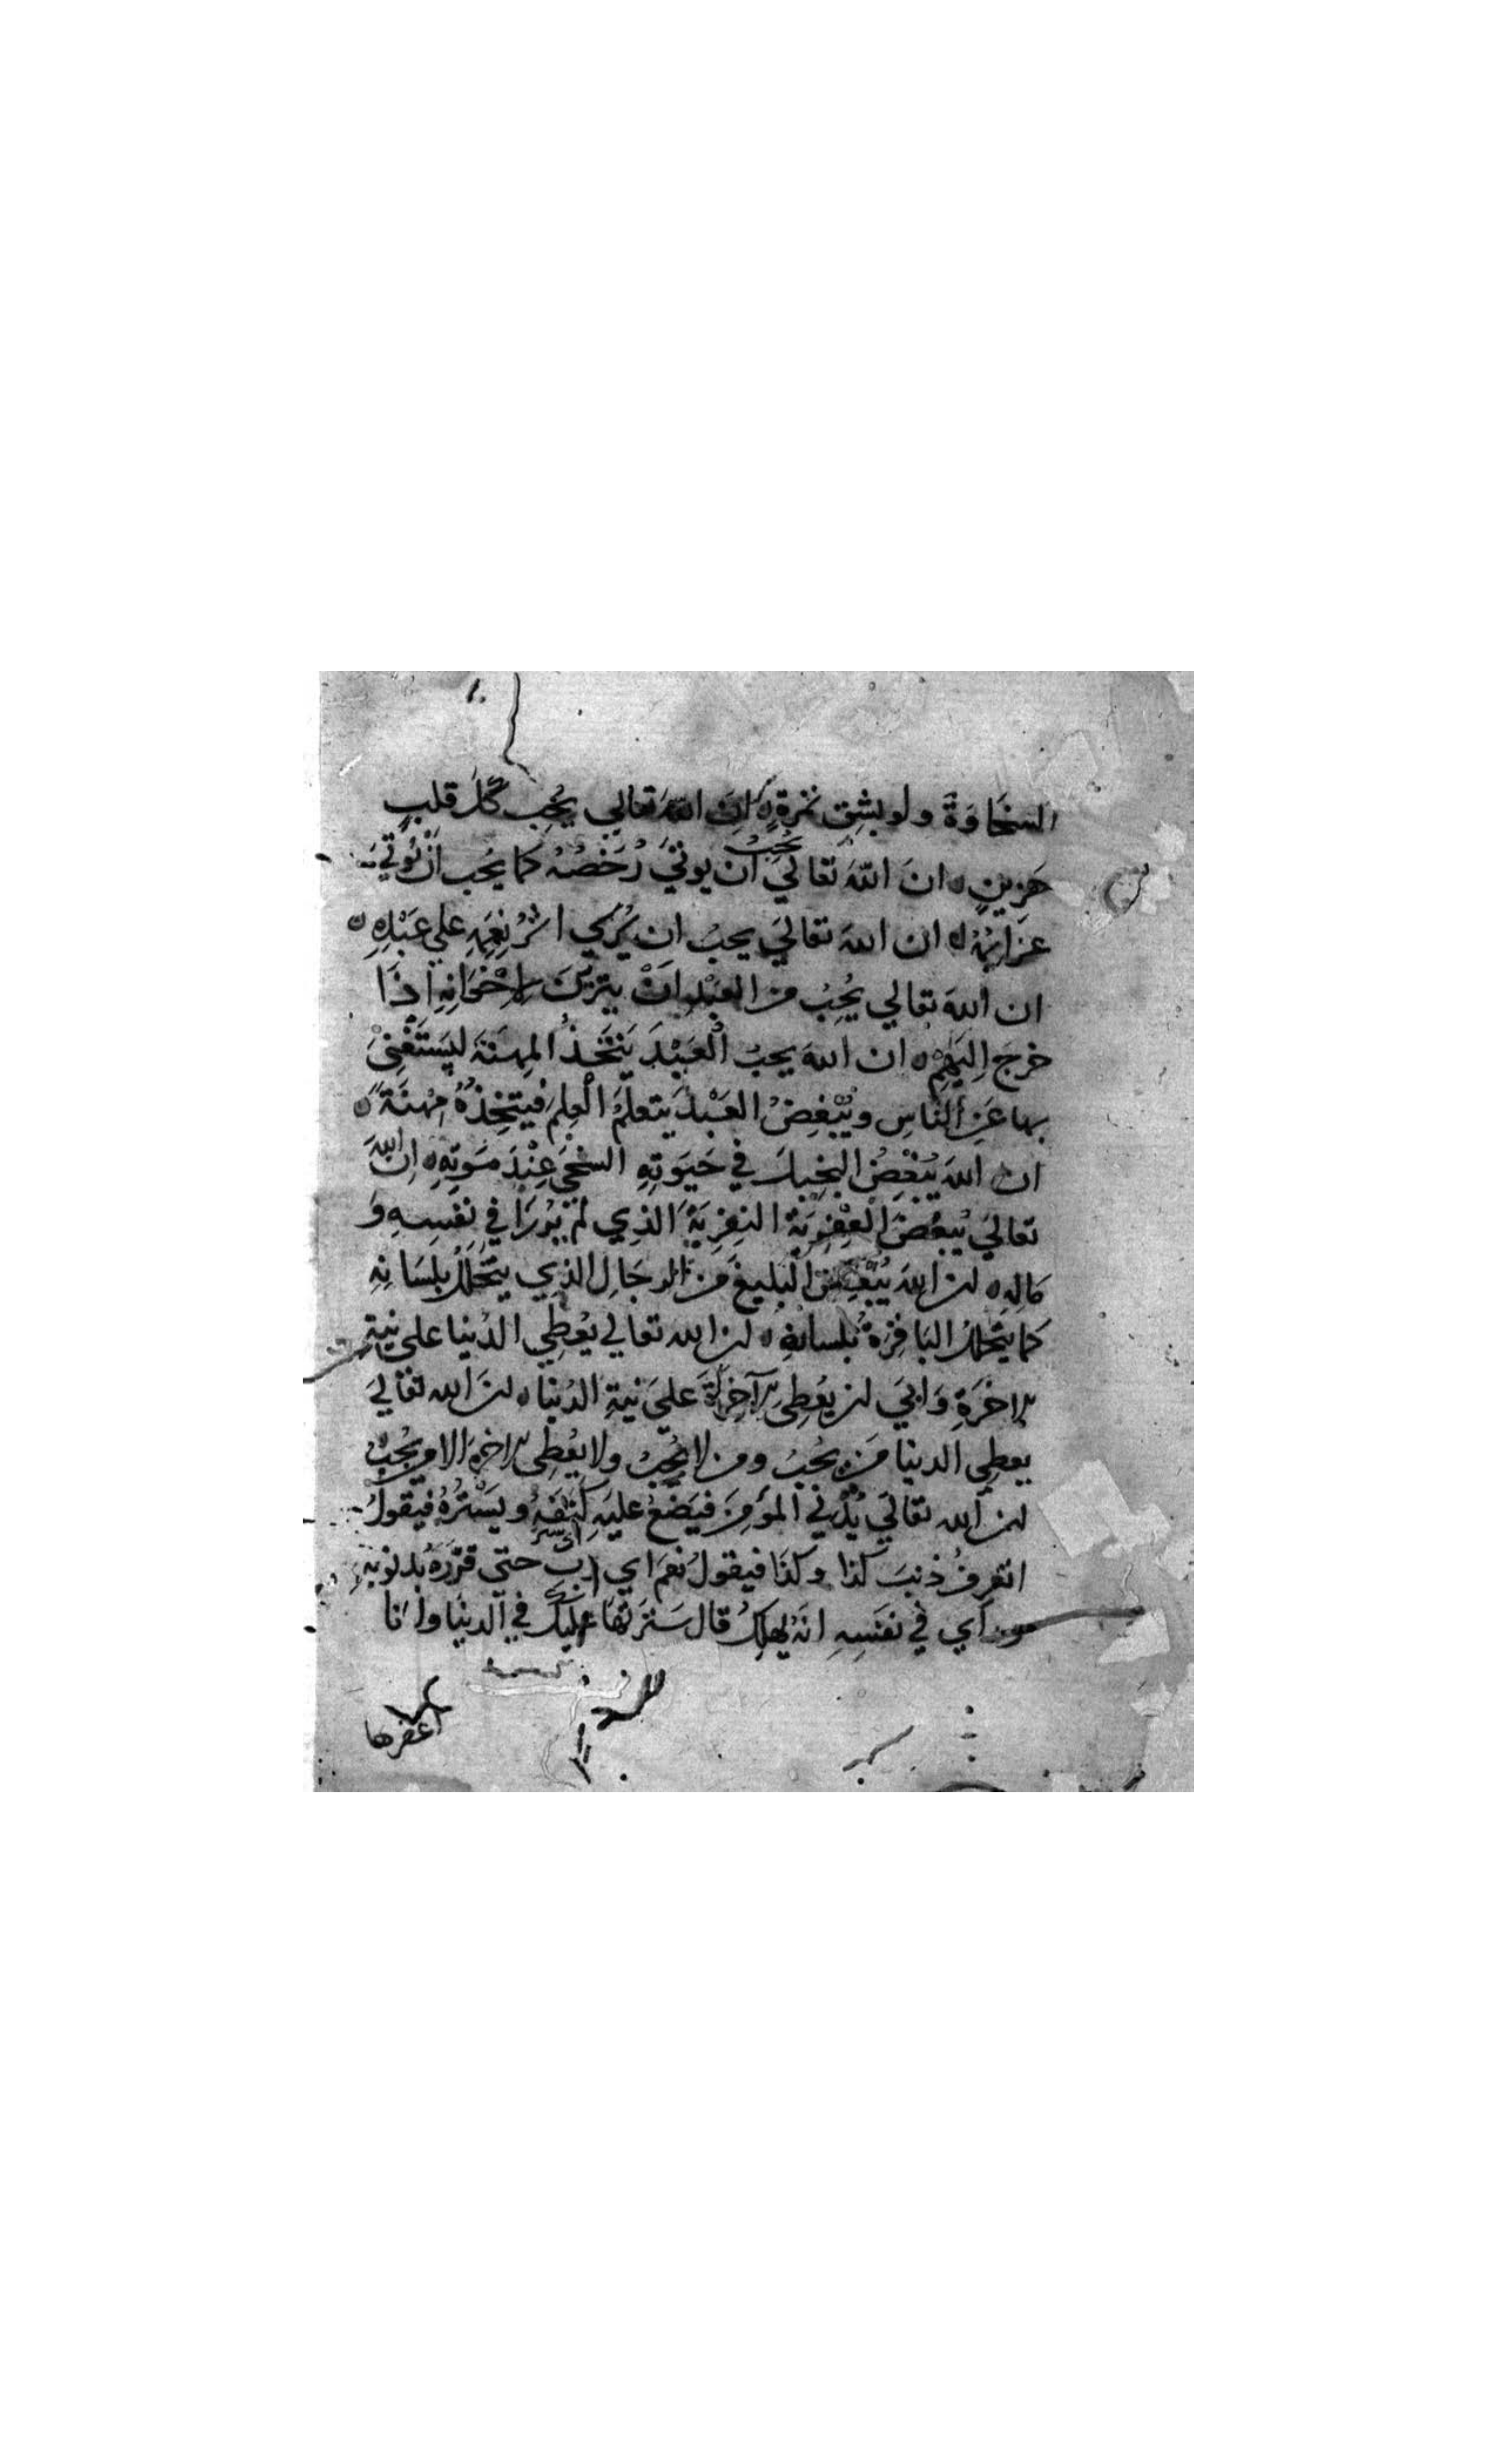 السخَاوَةَ ولو بشِقِ تمرةٍ ه انَ اللّهَ تعالي يُحِب كُلَ قلبٍ
حَزِينٍ ه انَ اللّهَ تعَاليَ يُحبُ ان يوتيَ رُخَصُهُ كما يُحِب انْ تُوتيَ
عَزَايمُهُ ه ان اللهَ تعَاليَ يحبُ ان يُرَي اثرُ نِعَمِهِ علي عَبْدِهِ ه
ان اللهَ تعَالي يُحِبُ من العَبْدِ انْ يتزيَنَ لاخْوَانِهِ اذَا
خرجَ اِليَهِمْ ه ان اللهَ يحبُ الْعَبْدَ يَتخَذُ المِهنَةَ ليَستَغْنِيَ
بهَا عَنِ النَاسِ ويُبْغِضُ العَبْدَ يتعلمُ الْعِلمَ فيتخِذهُ مِهْنَةً ه
ان اللهَ يُبْغِضُ البخِيلَ في حَيَوتِهِ السخيَ عِنْدَ مَوتِهِ ه انَ اللهَ
تعَاليَ يُبغِضُ الْعِفْرِيَةَ النِفرِيَةَ الذِي لمْ يُورَا في نفسِهِ وَ
مَالِهِ ه ان اللهَ يُبْغِضُ الْبَليغَ مَن الرجَالِ الذِي يتَخَلَلُ بلِسَانِهِ
كما يتَخَلَلُ البَاقِرَةُ بلسانِهِ ه ان الله تعالي يُعْطِي الدُنيا علي نيةِ
الاخرَةِ وَابيَ ان يُعْطِيَ الآخِرَةَ عليَ نيةِ الدُنيا ه انَ الله تعَالي
يعطِي الدنيا مَن يحُبُ ومن لا يُحِبُ ولا يعُطِي الاخرة الا من يُحِبُ
ان الله تعَاليَ يُدْني المُؤمِنَ فيَضَعُ عليَهِ كَنَفَهُ ويَسْتُرُهُ فيقولُ
اتعرِفُ ذنبَ كذا وكذَا فيقولُ نعَم اي رب حتي قرَرَهُ بذنوبهِ
ورَاَي في نفسِهِ انهُ يهلكُ قال سَتَرتُهَا عليكَ في الدنيَا وانَا
اغفرها